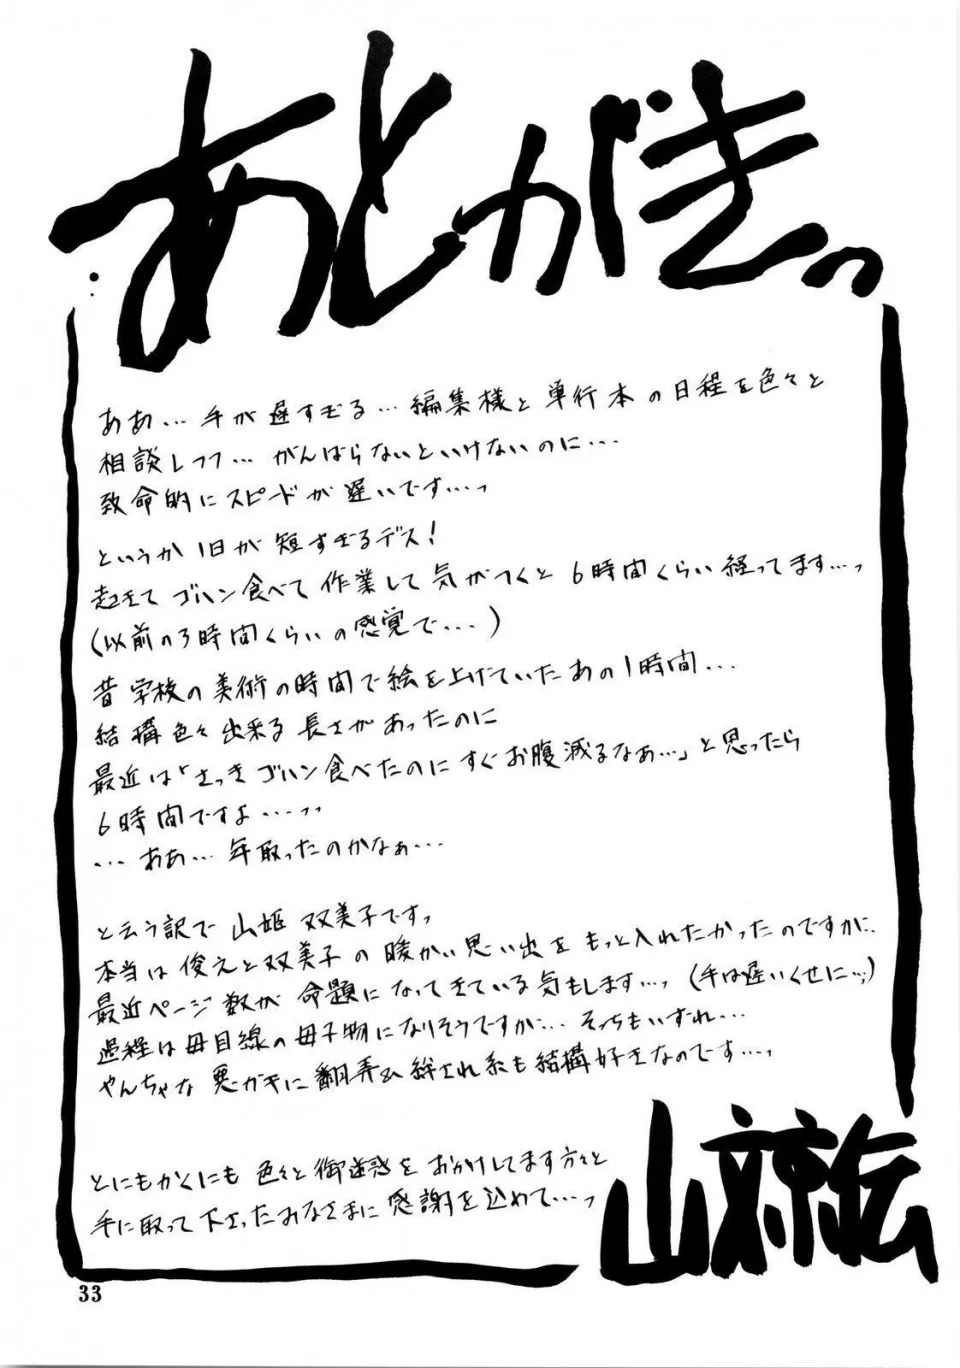 あとがきっ
ああ…手が遅すぎる…編集様と単行本の日程を色々と
相談しつつ…がんばらないといけないのに…
致命的にスピードが遅いです…っ
というか1日が短すぎるデス！
起きて ゴハン食べて 作業して 気がつくと 6時間くらい経ってます…っ
（以前の3時間くらいの感覚で…）
昔 学校の美術の時間で絵を上げていたあの1時間…
結構色々出来る長さがあったのに
最近は「さっきゴハン食べたのにすぐお腹減るなぁ…」と思ったら
6時間ですよ…っっ
…ああ…年取ったのかなぁ…
と云う訳で 山姫 双美子ですっ
本当は 俊えと双美子の暖かい思い出をもっと入れたかったのですが、
最近ページ数が命題になってきている気もします…っ（手は遅いくせに…っ）
過程は母目線の母子物になりそうですが…そっちもいずれ…
やんちゃな悪ガキに翻弄 絆され系も結構好きなのです…っ
とにもかくにも 色々と御迷惑をおかけしてます方々と
手に取って下さったみなさまに感謝を込めて…っ
33